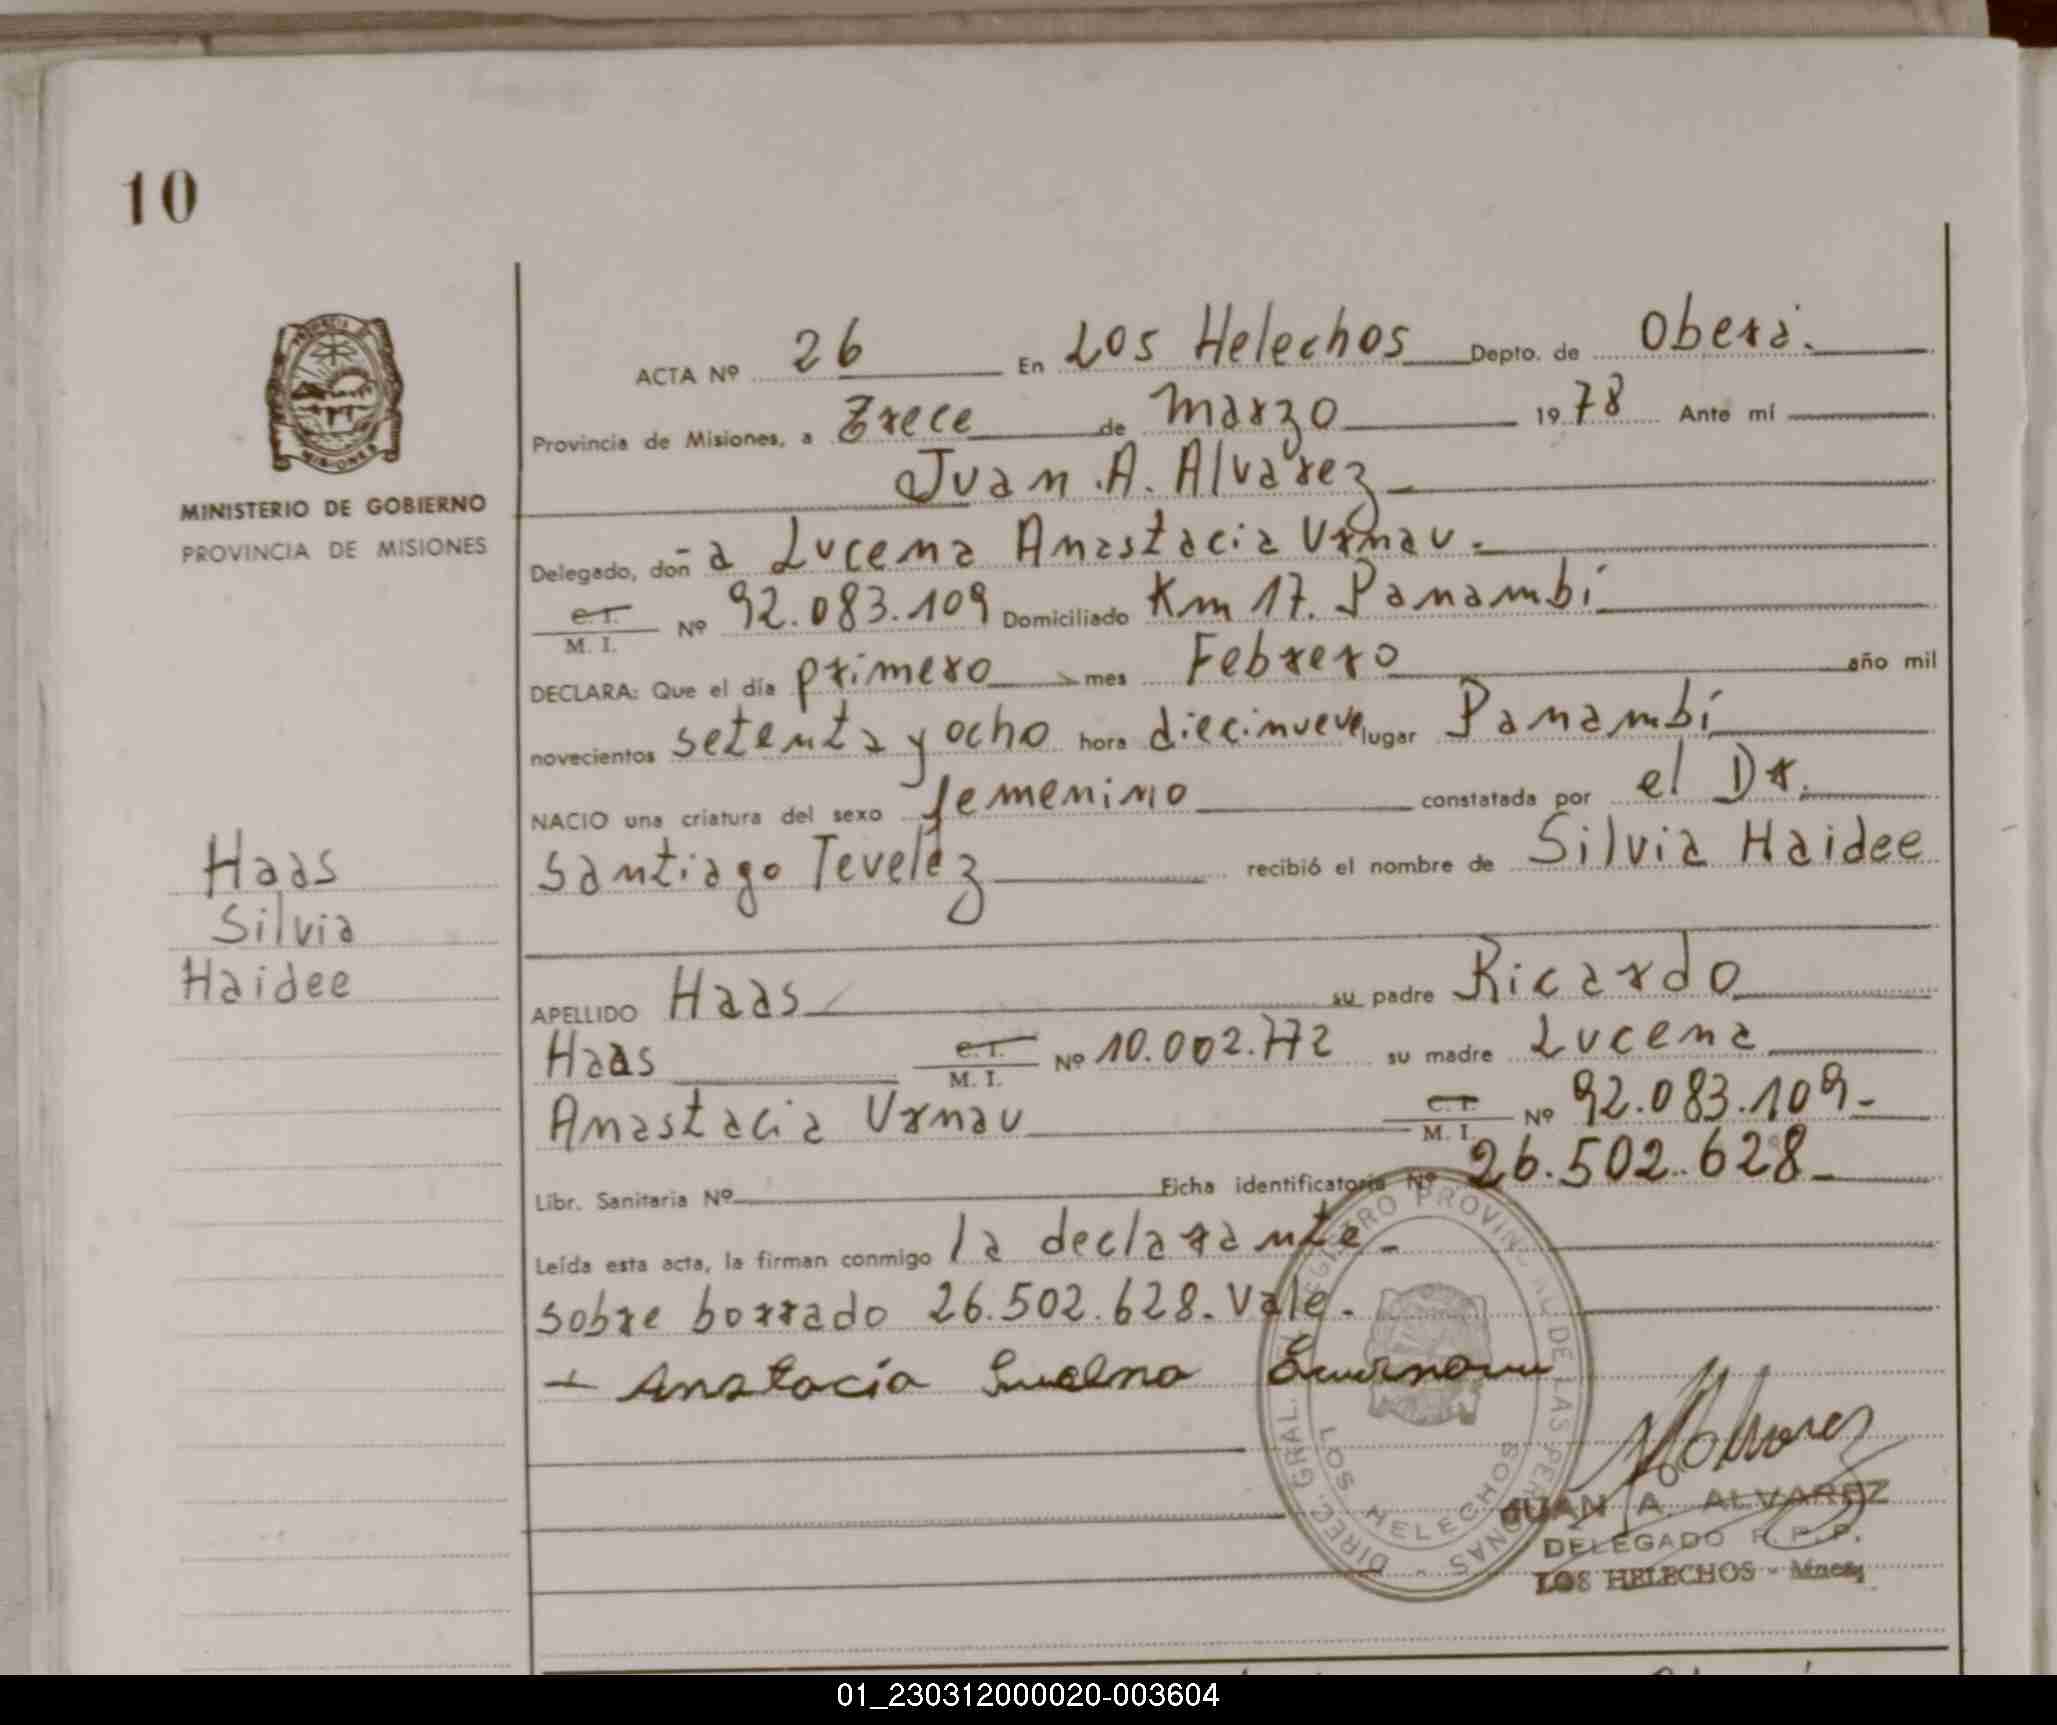 10
MINISTERIO DE GOBIERNO
PROVINCIA DE MISIONES
ACTA Nº 26 En Los Helechos Depto. de Oberá.
Provincia de Misiones, a trece de marzo 1978 Ante mí
Juan A. Alvarez
Delegado, doña Lucena Anastacia Urnau.
C. I. M. I. Nº 92.083.109 Domiciliado Km 17. Panambí
DECLARA: Que el día primero mes Febrero año mil
novecientos setenta y ocho hora diecinueve lugar Panambí
NACIO una criatura del sexo femenino constatada por el Dr.
Santiago Tevelez recibió el nombre de Silvia Haidee
Haas
Silvia
Haidee
APELLIDO Haas su padre Ricardo
Haas C. I. M. I. Nº 10.002.772 su madre Lucena
Anastacia Urnau C. I. M. I. Nº 92.083.109-
Libr. Sanitaria Nº Ficha identificatoria Nº 26.502.628
Leída esta acta, la firman conmigo la declarante-
sobre borrado 26.502.628. Vale.
Anstacia
DIREC. GRAL. REGISTRO PROVINCIAL DE LAS PERSONAS
LOS HELECHOS
JUAN A. ALVAREZ
DELEGADO R. P. P.
LOS HELECHOS - Mnes,
01_230312000020-003604